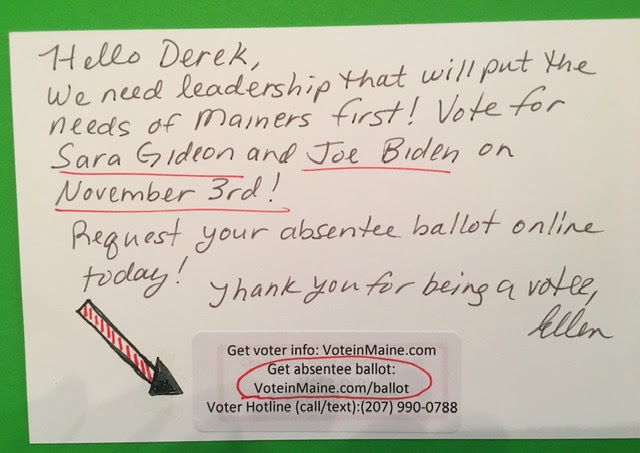 Hello Derek,
We need leadership that will put the
needs of Mainers first! Vote for
Sara Gideon and Joe Biden on
November 3rd!
Request your absentee ballot online
today!
Thank you for being a voter,
Ellen
Get voter info: VoteinMaine.com
Get absentee ballot:
VoteinMaine.com/ballot
Voter Hotline (call/text):(207) 990-0788